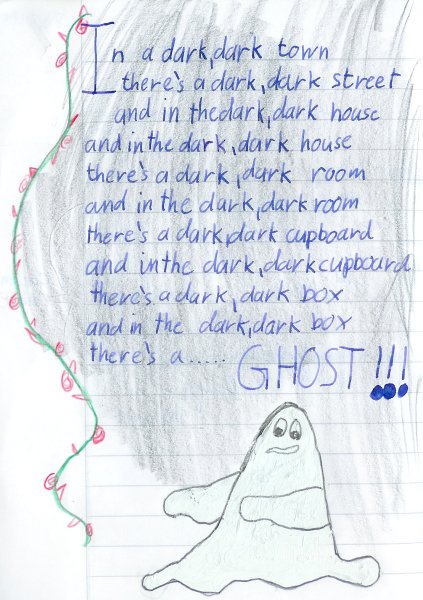 In a dark, dark town
there's a dark, dark street
and in the dark, dark house
and in the dark, dark house
there's a dark, dark room
and in the dark, dark room
there's a dark, dark cupboard
and in the dark, dark cupboard
there's a dark, dark box
and in the dark, dark box
there's a.....
GHOST!!!